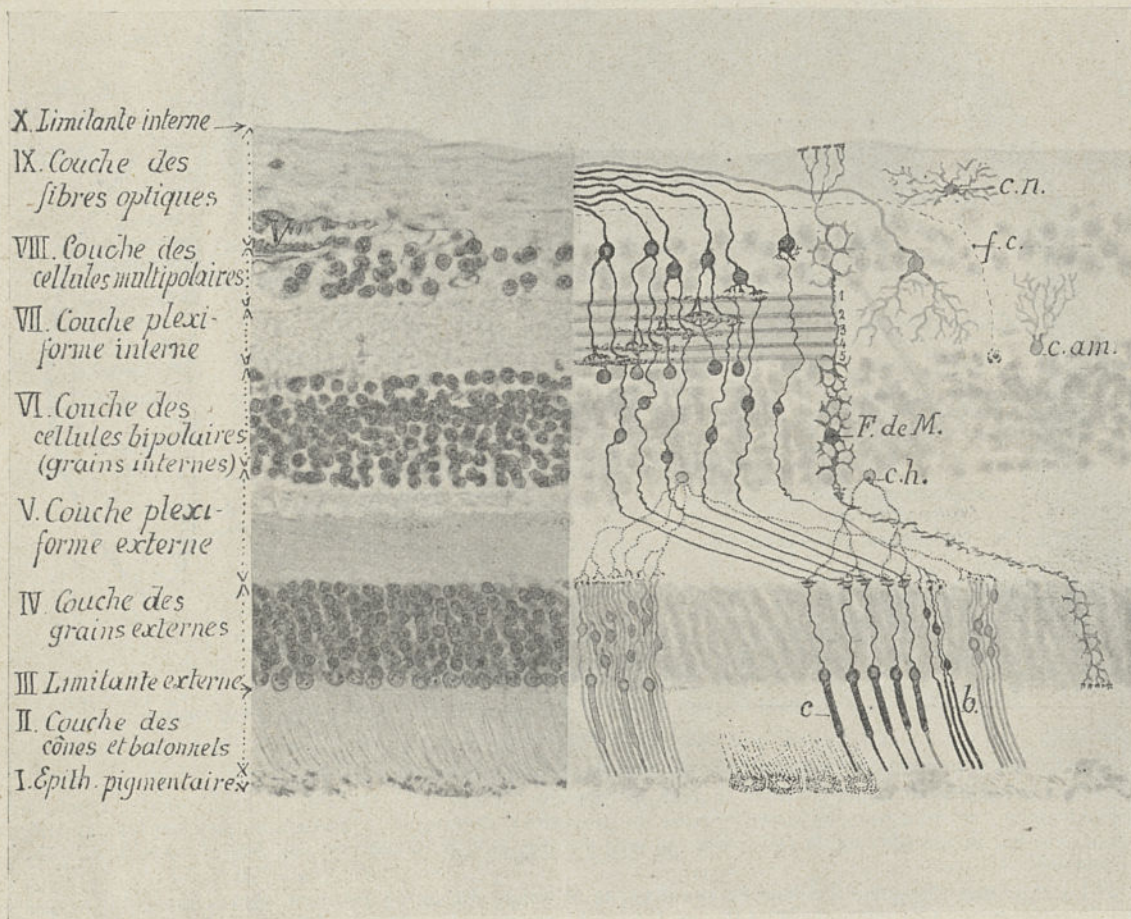 X. Limitante interne
IX. Couche des
fibres optiques
VIII. Couche des
cellules multipolaires
VII. Couche plexi-
forme interne
VI. Couche des
cellules bipolaires
(grains internes)
V. Couche plexi-
forme externe
IV. Couche des
grains externes
III Limitante externe
II. Couche des
cônes et batonnets
I. Epith. pigmentaire
V
c.n.
f.c.
1
2
3
4
5
c.am.
F. de M.
c.h.
c
b.